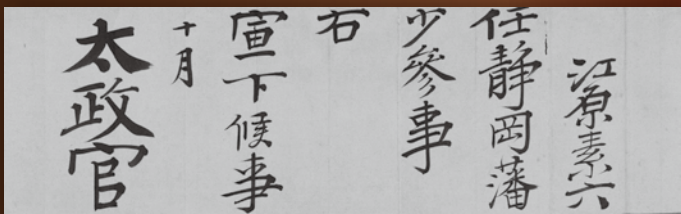 江原素六
任静岡藩
少參事
右
宣下候事
十月
太政官